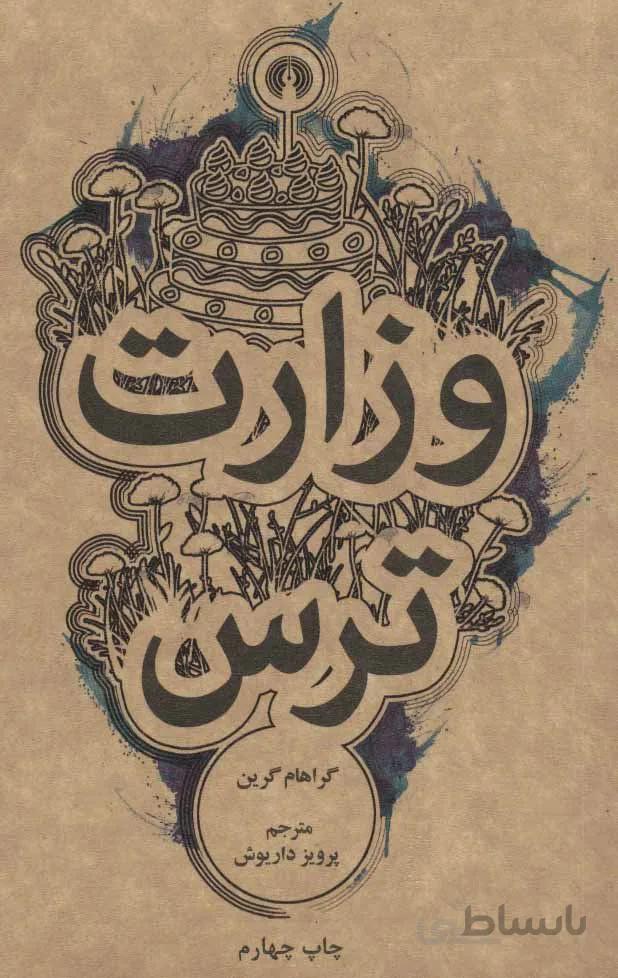 وزارت
ترس
گراهام گرین
مترجم
پرویز داریوش
چاپ چهارم